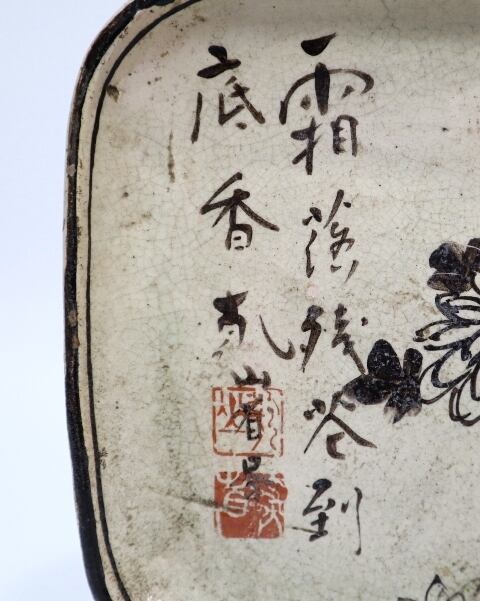 霜落残花到
底香乾山省